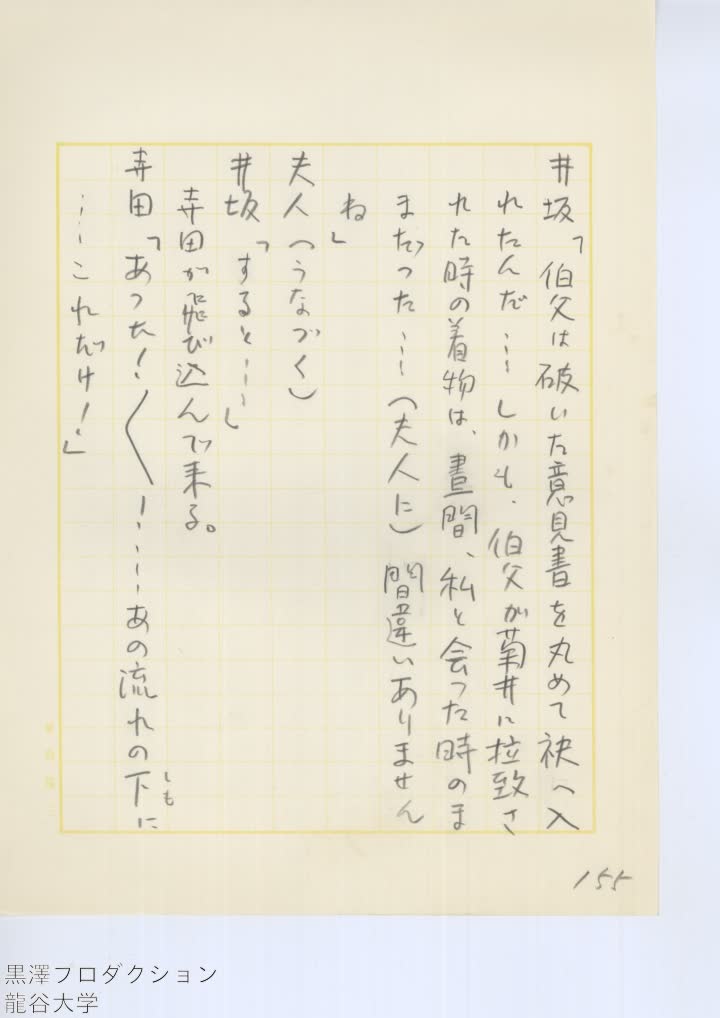 井坂「伯父は破いた意見書を丸めて袂へ入
れたんだ……しかも、伯父が菊井に拉致さ
れた時の着物は、晝間、私と会った時のま
まだった……（夫人に）間違いありません
ね」
夫人（うなづく）
井坂「すると……」
寺田が飛び込んで来る。
寺田「あった！〱！……あの流れの下に
しも
……これだけ！」
155
黒澤プロダクション
龍谷大学